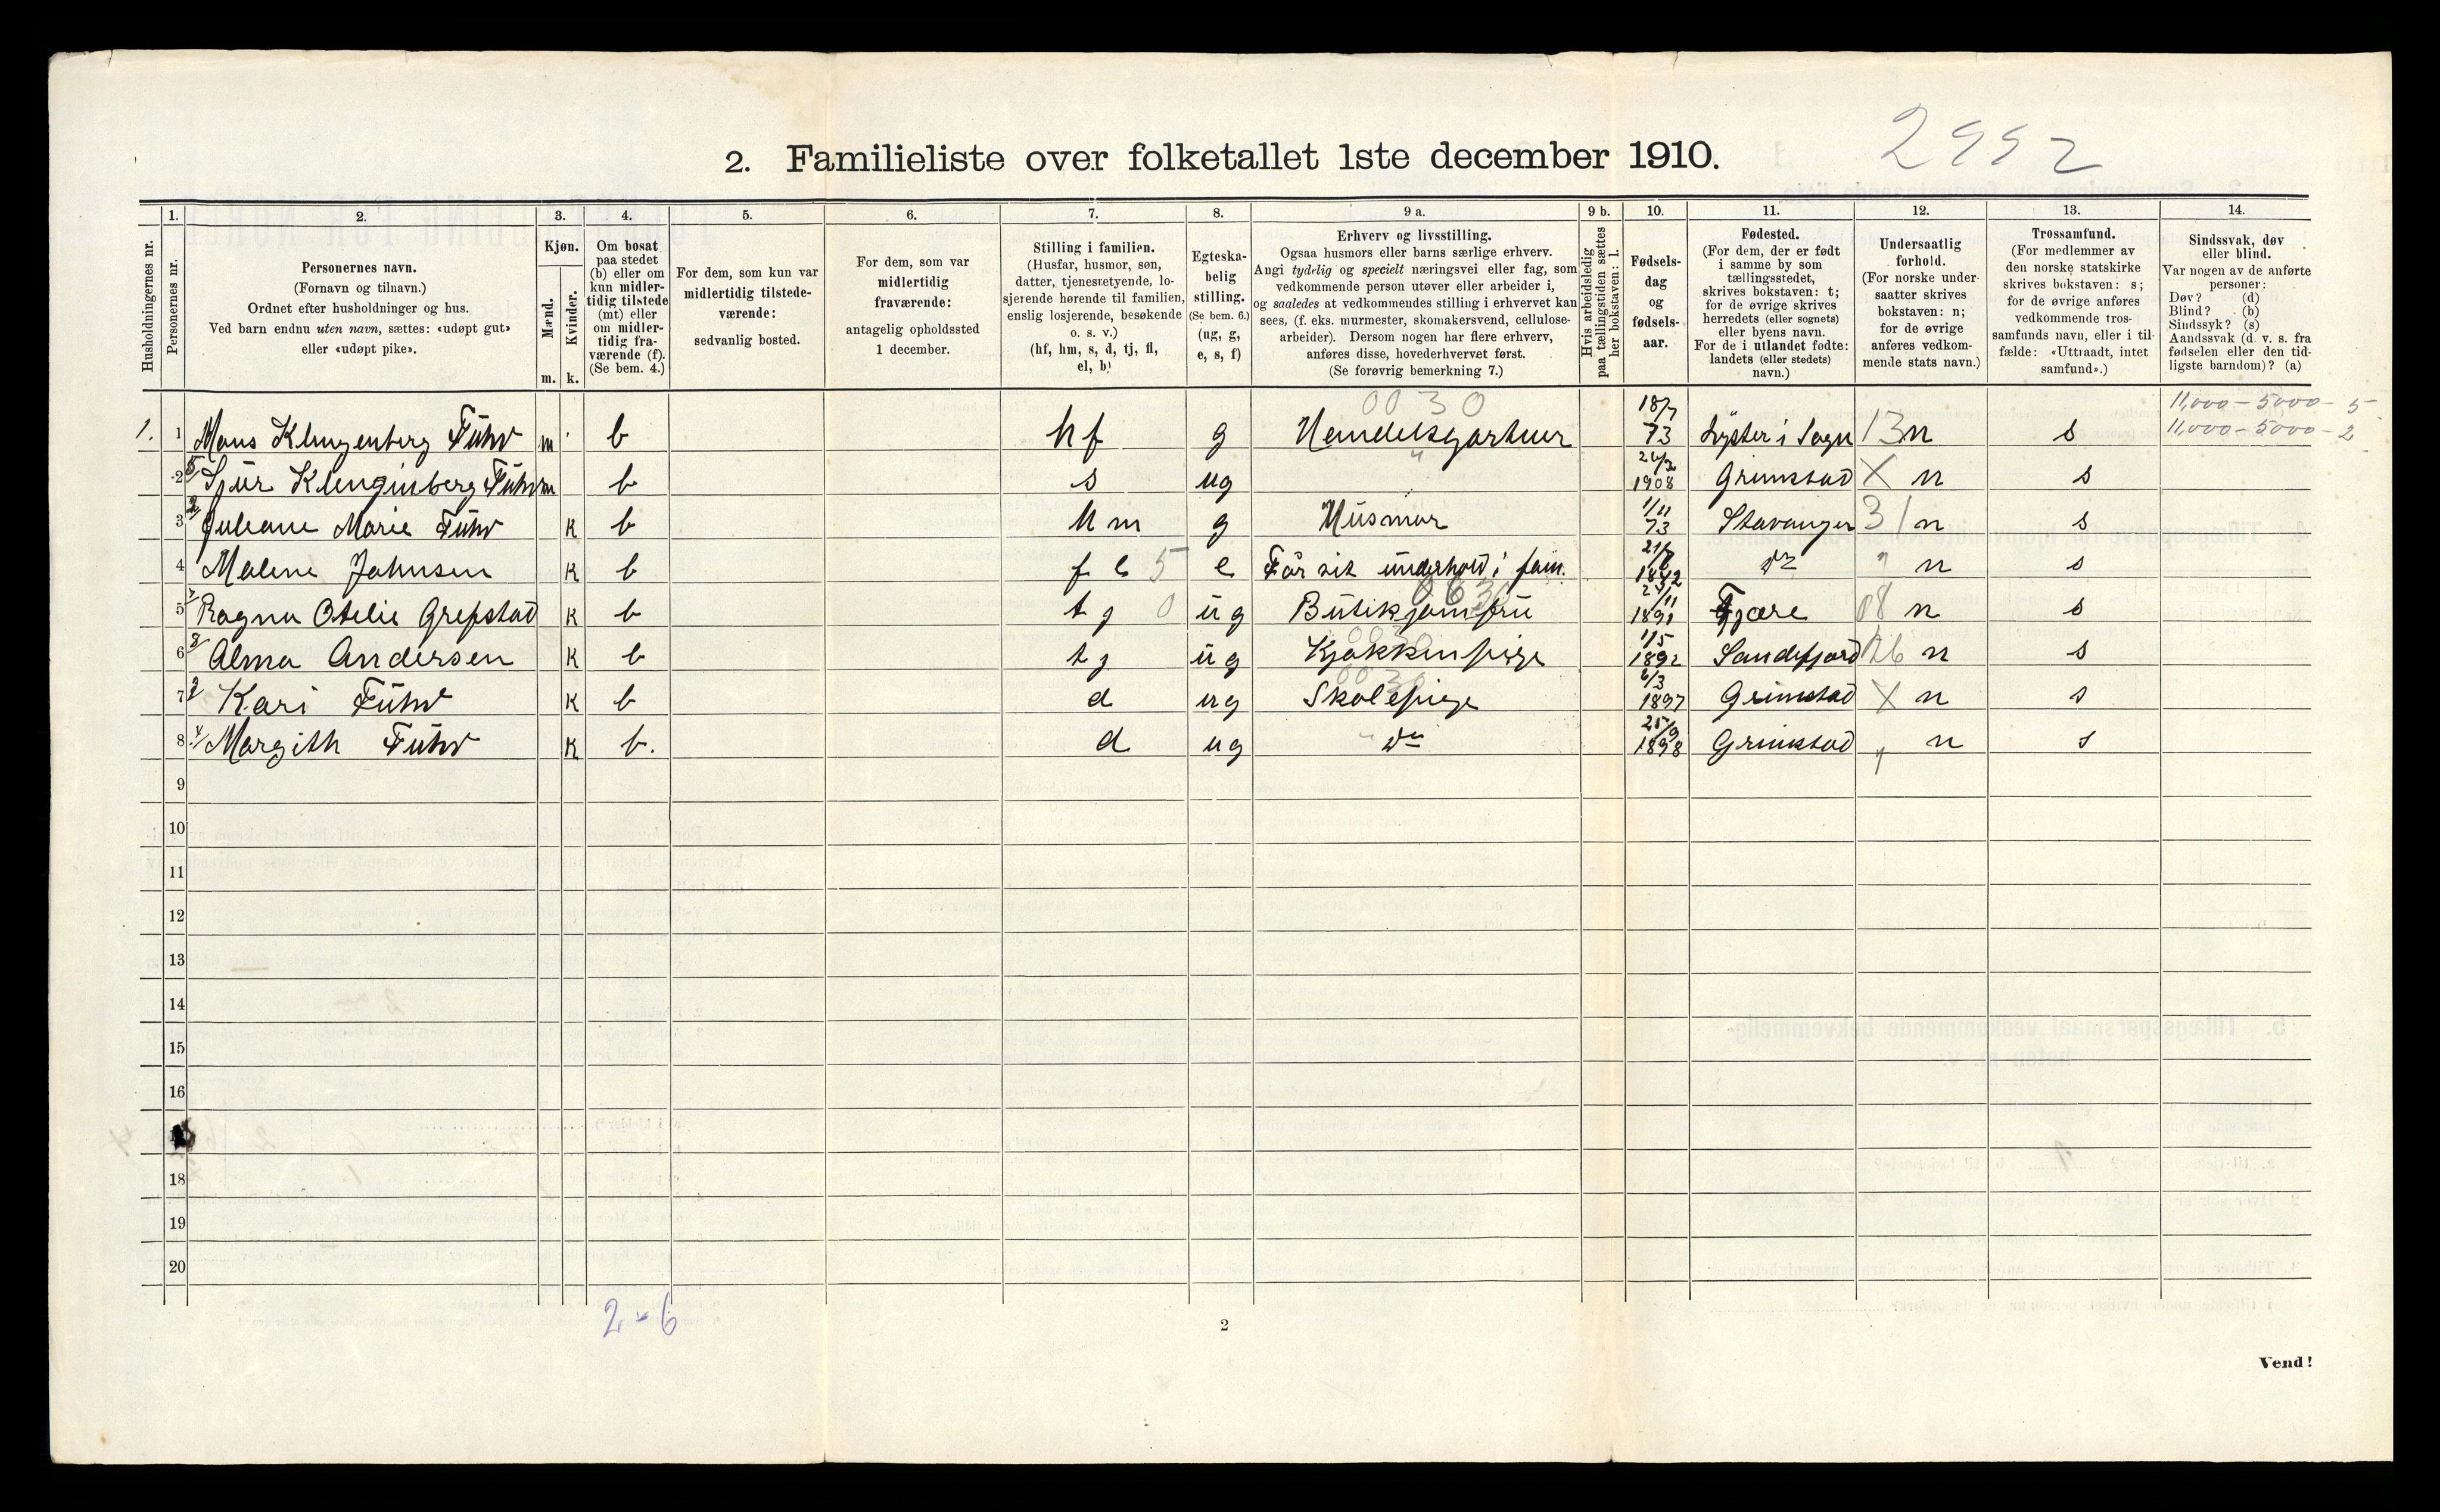 2992
2. Familieliste over folketallet 1ste december 1910.
1. 2. 3. 4. 5. 6. 7. 8. 9 a. 9 b. 10. 11. 12. 13. 14.
Husholdningernes nr.
Personernes nr.
Personernes navn.
(Fornavn og tilnavn.)
Ordnet efter husholdninger og hus.
Ved barn endnu uten navn, sættes: «udøpt gut»
eller «udøpt pike».
Kjøn.
Mænd.
m.
Kvinder.
k.
Om bosat
paa stedet
(b) eller om
kun midler-
tidig tilstede
(mt) eller
om midler-
tidig fra-
værende (f).
(Se bem. 4.)
For dem, som kun var
midlertidig tilstede-
værende:
sedvanlig bosted.
For dem, som var
midlertidig
fraværende:
antagelig opholdssted
1 december.
Stilling i familien.
(Husfar, husmor, søn,
datter, tjenestetyende, lo-
sjerende hørende til familien,
enslig losjerende, besøkende
o. s. v.)
(hf, hm, s, d, tj, fl,
el, b)
Egteska-
belig
stilling.
(Se bem. 6.)
(ug, g,
e, s, f)
Erhverv og livsstilling.
Ogsaa husmors eller barns særlige erhverv.
Angi tydelig og specielt næringsvei eller fag, som
vedkommende person utøver eller arbeider i,
og saaledes at vedkommendes stilling i erhvervet kan
sees, (f. eks. murmester, skomakersvend, cellulose-
arbeider). Dersom nogen har flere erhverv,
anføres disse, hovederhvervet først.
(Se forøvrig bemerkning 7.)
Hvis arbeidsledig
paa tællingstiden sættes
her bokstaven: l.
Fødsels-
dag
og
fødsels-
aar.
Fødested.
(For dem, der er født
i samme by som
tællingsstedet,
skrives bokstaven: t;
for de øvrige skrives
herredets (eller sognets)
eller byens navn.
For de i utlandet fødte:
landets (eller stedets)
navn.)
Undersaatlig
forhold.
(For norske under-
saatter skrives
bokstaven: n;
for de øvrige
anføres vedkom-
mende stats navn.)
Trossamfund.
(For medlemmer av
den norske statskirke
skrives bokstaven: s;
for de øvrige anføres
vedkommende tros-
samfunds navn, eller i til-
fælde: «Uttraadt, intet
samfund».)
Sindssvak, døv
eller blind.
Var nogen av de anførte
personer:
Døv? (d)
Blind? (b)
Sindssyk? (s)
Aandssvak (d. v. s. fra
fødselen eller den tid-
ligste barndom)? (a)
0030 11,000 - 5000 - 5
1. 1 Mons Klingenberg Führ m b hf g Handelsgartner 18/7 73 Lyster i Sogn 13 n s 11,000 - 5000 - 2
2 Sjür Klingenberg Führ m b s ug " 1908 Grimstad X n s
3 Juliane Marie Führ k b hm g Husmor 1/11 73 Stavanger 31 n s
4 Malene Johnsen k b fl 5 e Får sit underhold i fam. 1842 do " n s
5 Ragna Otelie Grefstad k b tj 0 ug Butikjomfru 1891 Fjære 08 n s
6 Alma Andersen k b tj ug Kjøkkenpige 1/5 1892 Sandefjord n s
7 Kari Führ k b d ug Skolepige 6/3 1897 Grimstad X n s
8 Margith Führ k b. d ug " do 25/9 1898 Grimstad " n s
9
10
11
12
13
14
15
16
18
19
20
2 - 6
2
Vend!